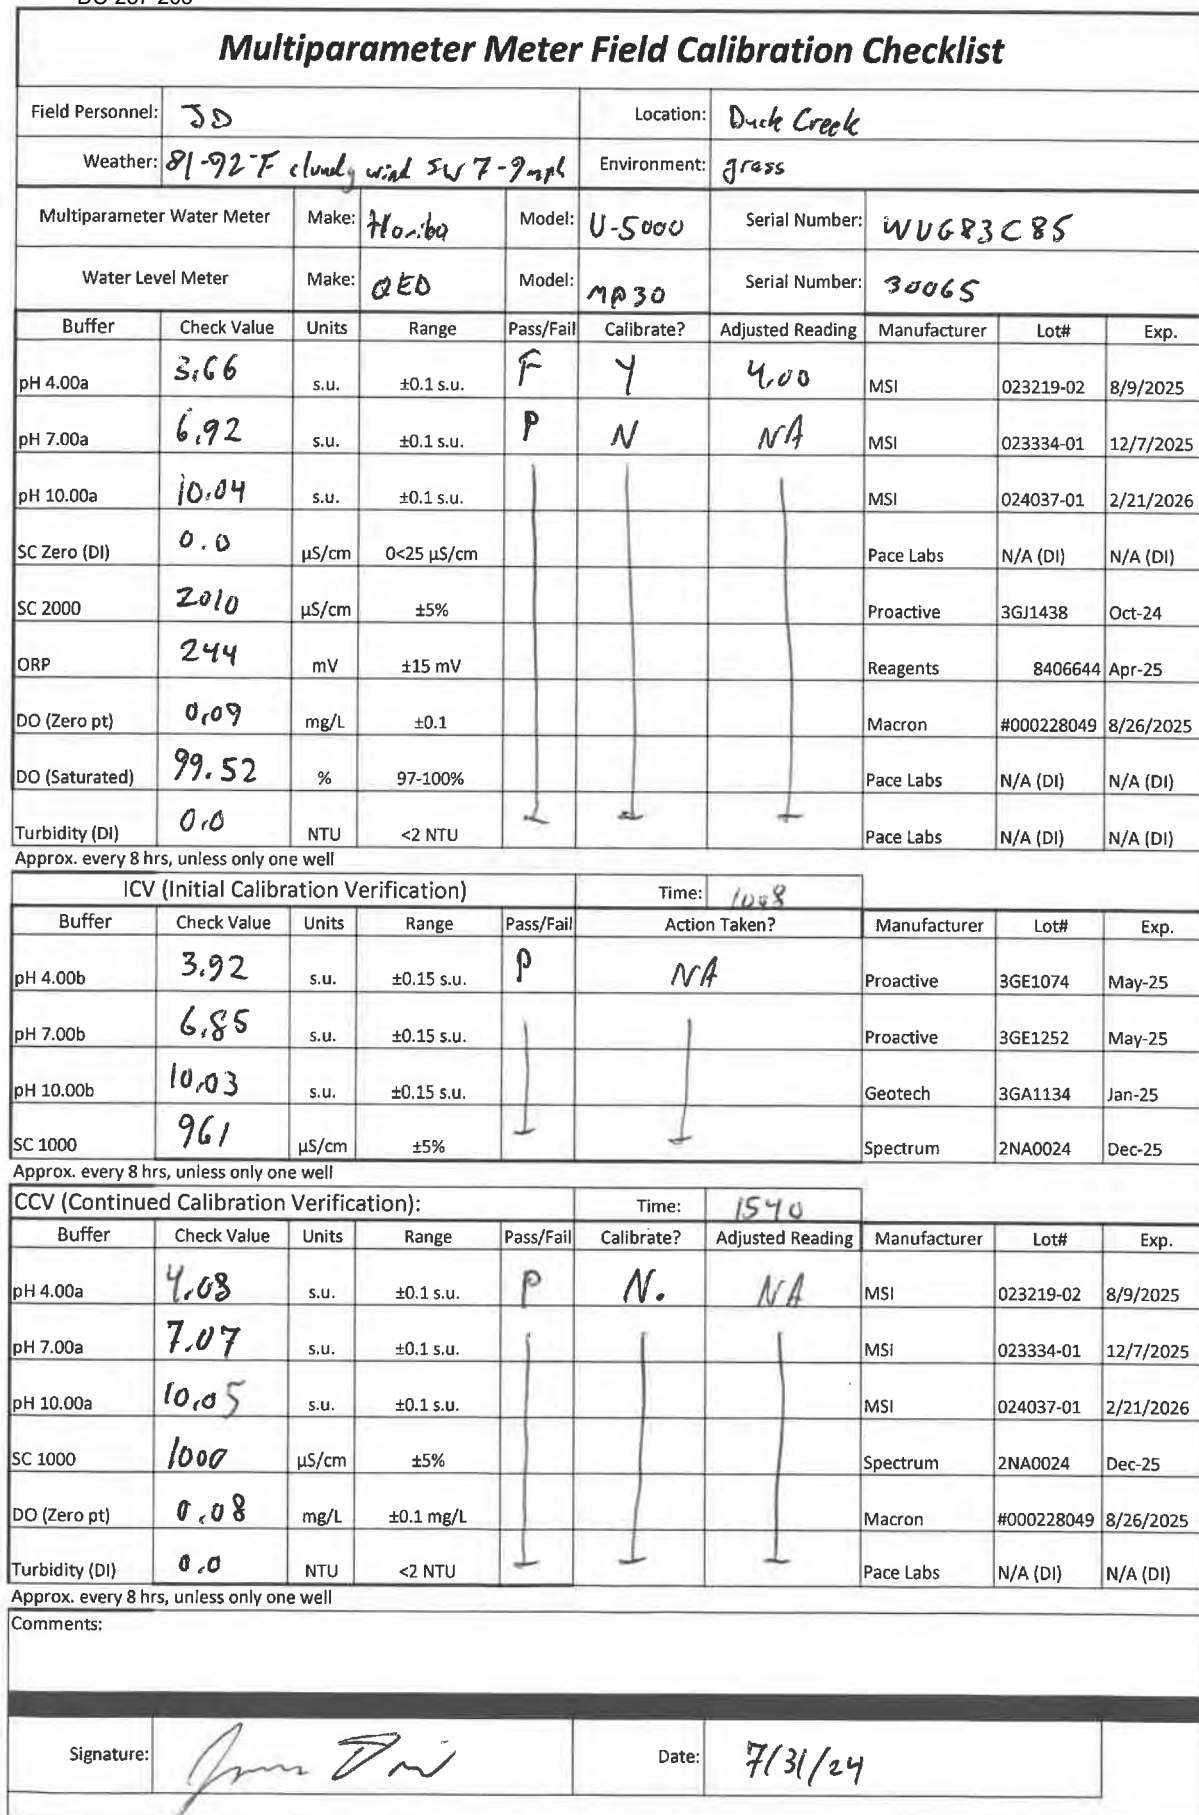 Multiparameter Meter Field Calibration Checklist
Field Personnel: JD Location: Duck Creek
Weather: 81-92°F cloudy wind SW 7-9mph Environment: grass
Multiparameter Water Meter Make: Horiba Model: U-5000 Serial Number: WUG83C85
Water Level Meter Make: QED Model: MP30 Serial Number: 30065
Buffer Check Value Units Range Pass/Fail Calibrate? Adjusted Reading Manufacturer Lot# Exp.
pH 4.00a 3.66 s.u. ±0.1 s.u. F Y 4.00 MSI 023219-02 8/9/2025
pH 7.00a 6.92 s.u. ±0.1 s.u. P N NA MSI 023334-01 12/7/2025
pH 10.00a 10.04 s.u. ±0.1 s.u. MSI 024037-01 2/21/2026
SC Zero (DI) 0.0 µS/cm 0<25 µS/cm Pace Labs N/A (DI) N/A (DI)
SC 2000 2010 µS/cm ±5% Proactive 3GJ1438 Oct-24
ORP 244 mV ±15 mV Reagents 8406644 Apr-25
DO (Zero pt) 0.09 mg/L ±0.1 Macron #000228049 8/26/2025
DO (Saturated) 99.52 % 97-100% Pace Labs N/A (DI) N/A (DI)
Turbidity (DI) 0.0 NTU <2 NTU Pace Labs N/A (DI) N/A (DI)
Approx. every 8 hrs, unless only one well
ICV (Initial Calibration Verification) Time: 1008
Buffer Check Value Units Range Pass/Fail Action Taken? Manufacturer Lot# Exp.
pH 4.00b 3.92 s.u. ±0.15 s.u. P NA Proactive 3GE1074 May-25
pH 7.00b 6.85 s.u. ±0.15 s.u. Proactive 3GE1252 May-25
pH 10.00b 10.03 s.u. ±0.15 s.u. Geotech 3GA1134 Jan-25
SC 1000 961 µS/cm ±5% Spectrum 2NA0024 Dec-25
Approx. every 8 hrs, unless only one well
CCV (Continued Calibration Verification): Time: 1540
Buffer Check Value Units Range Pass/Fail Calibrate? Adjusted Reading Manufacturer Lot# Exp.
pH 4.00a 4.08 s.u. ±0.1 s.u. P N. NA MSI 023219-02 8/9/2025
pH 7.00a 7.07 s.u. ±0.1 s.u. MSI 023334-01 12/7/2025
pH 10.00a 10.05 s.u. ±0.1 s.u. MSI 024037-01 2/21/2026
SC 1000 1000 µS/cm ±5% Spectrum 2NA0024 Dec-25
DO (Zero pt) 0.08 mg/L ±0.1 mg/L Macron #000228049 8/26/2025
Turbidity (DI) 0.0 NTU <2 NTU Pace Labs N/A (DI) N/A (DI)
Approx. every 8 hrs, unless only one well
Comments:
Signature: Date: 7/31/24